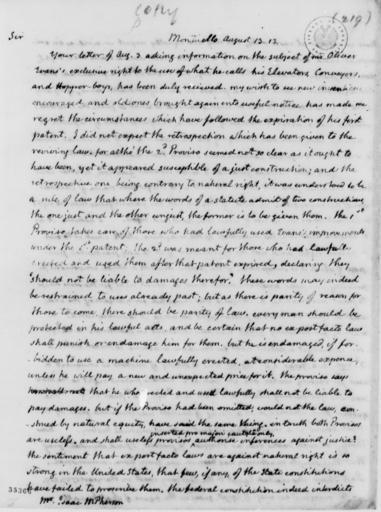 copy
(219)
Sir Monticello August 13. 13.
Your letter of Aug. 3 asking information on the subject of mr Oliver
Evans's exclusive right to the use of what he calls his Elevators, Conveyers,
and Hopper-boys, has been duly received. my wish to see new inventions
encouraged, and old ones brought again into useful notice, has made me
regret the circumstances which have followed the expiration of his first
patent. I did not expect the retrospection which has been given to the
reviving law. for altho' the 2d Proviso seemed not so clear as it ought to
have been, yet it appeared susceptible of a just construction; and the
retrospective one being contrary to natural right, it was understood to be
a rule of law that where the words of a statute admit of two constructions,
the one just and the other unjust, the former is to be given them. the 1st
Proviso takes care of those who had lawfully used Evans's improvements
under the 1st patent. the 2d was meant for those who had lawfully
erected and used them after that patent expired, declaring they
"should not be liable to damages therefor." these words may indeed
be restrained to uses already past; but as there is parity of reason for
those to come, there should be parity of law. every man should be
protected in his lawful acts, and be certain that no ex post facto law
shall punish or endamage him for them. but he is endamaged, if for-
bidden to use a machine lawfully erected, at considerable expence,
unless he will pay a new and unexpected price for it. the proviso says
that he who erected and used lawfully shall not be liable to
pay damages. but if the Proviso had been omitted, would not the law, con-
strued by natural equity, have said the same thing. in truth both Provisos
are useless. and shall useless provisos, inserted pro majori cautela only, authorise inferences against justice?
the sentiment that ex post facto laws are against natural right is so
strong in the United States, that few, if any, of the State constitutions
have failed to proscribe them. the federal constitution indeed interdicts
Mr. Isaac McPherson